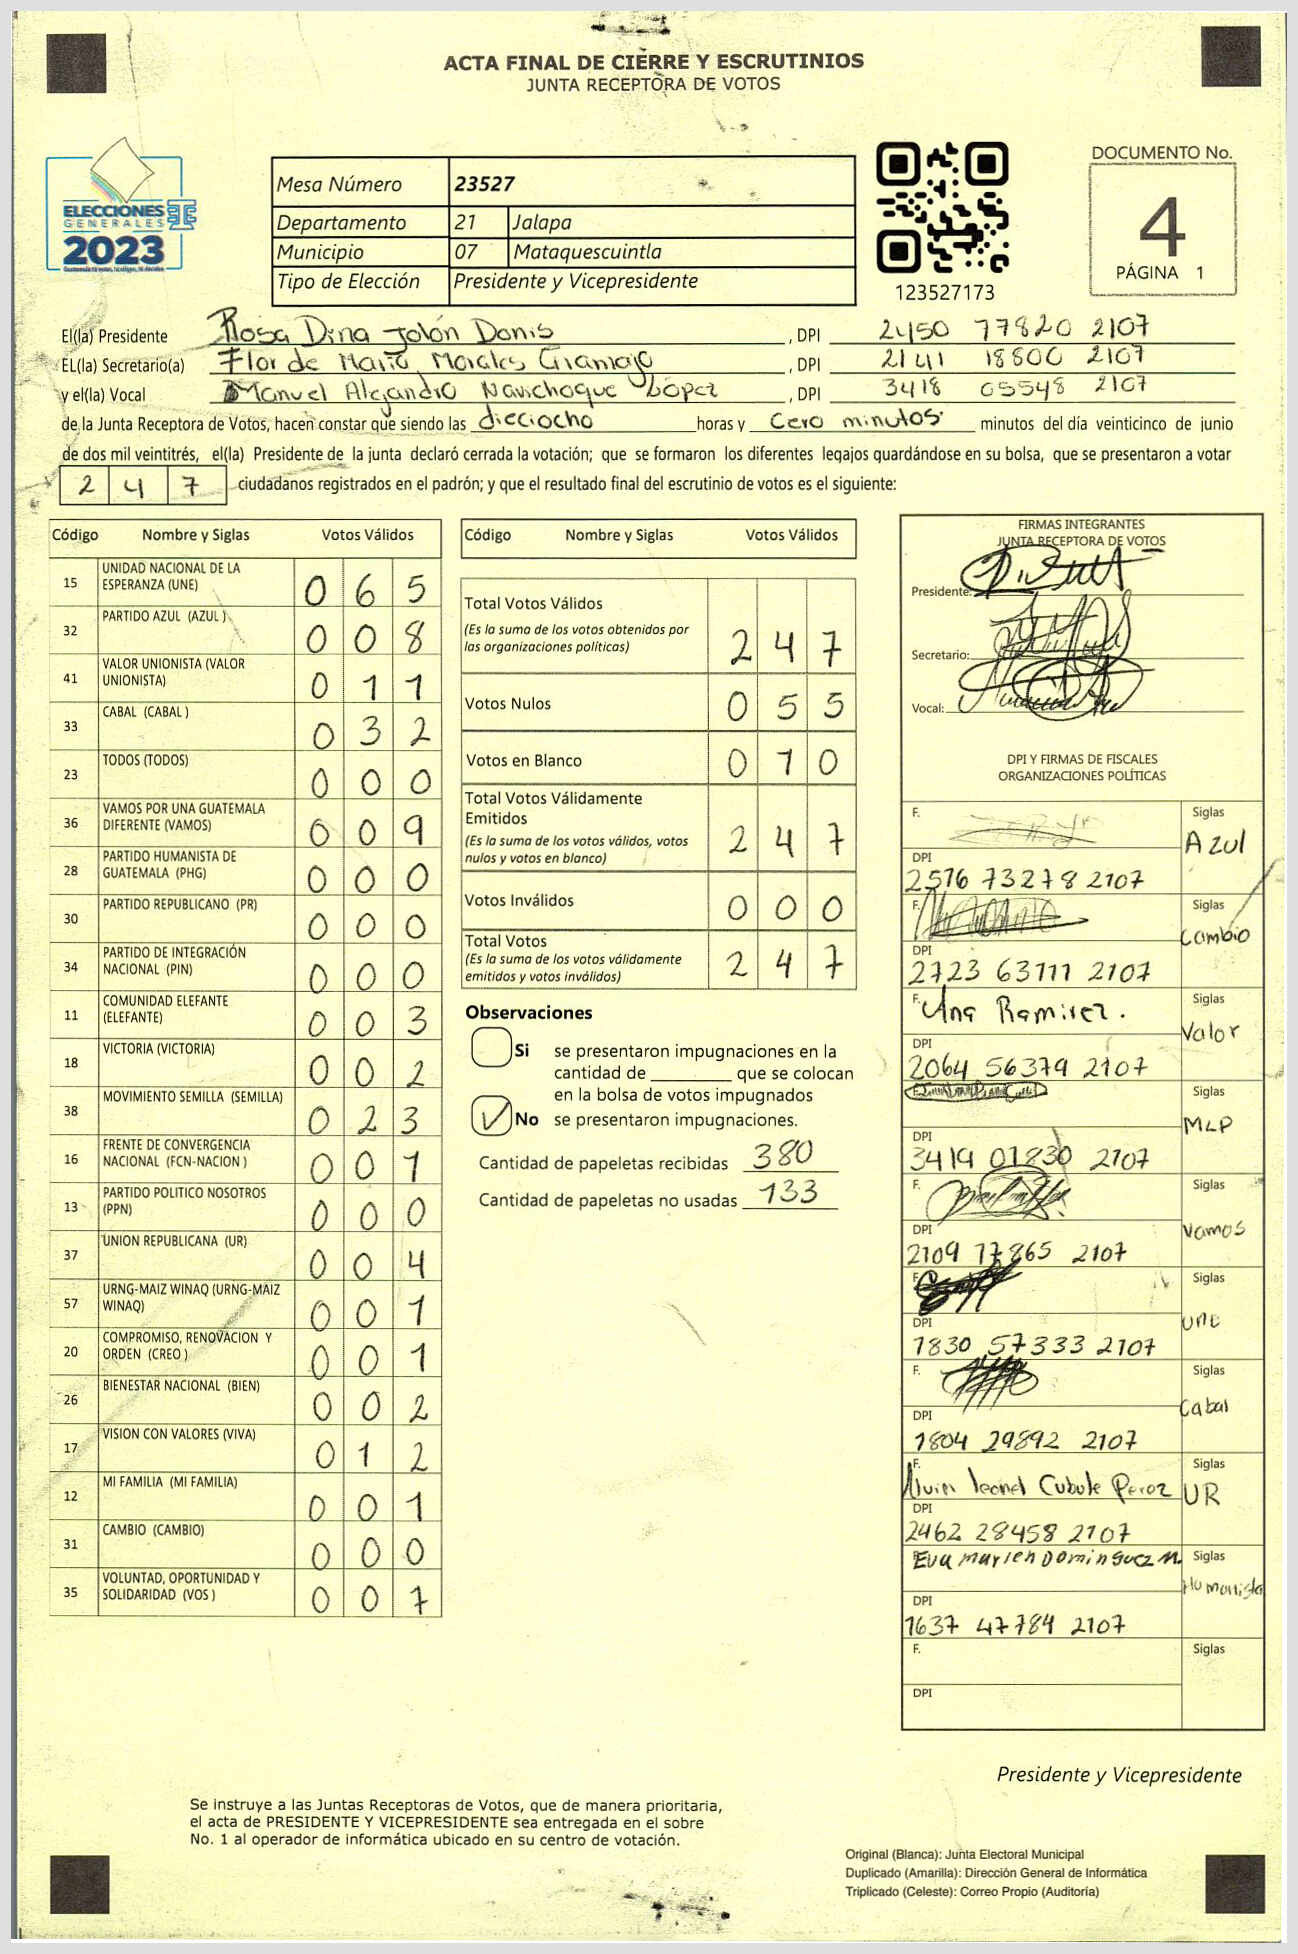 ACTA FINAL DE CIERRE Y ESCRUTINIOS
JUNTA RECEPTORA DE VOTOS
ELECCIONES
GENERALES
2023
Mesa Número 23527
Departamento 21 Jalapa
Municipio 07 Mataquescuintla
Tipo de Elección Presidente y Vicepresidente
123527173
DOCUMENTO No.
4
PÁGINA 1
El(la) Presidente Rosa Dina Jolón Donis , DPI 2450 77820 2107
EL(la) Secretario(a) Flor de María Morales Gramajo , DPI 2141 18800 2107
y el(la) Vocal Manuel Alejandro Navichoque López , DPI 3418 05548 2107
de la Junta Receptora de Votos, hacen constar que siendo las dieciocho horas y Cero minutos minutos del día veinticinco de junio
de dos mil veintitrés, el(la) Presidente de la junta declaró cerrada la votación; que se formaron los diferentes legajos guardándose en su bolsa, que se presentaron a votar
2 4 7 ciudadanos registrados en el padrón; y que el resultado final del escrutinio de votos es el siguiente:
Código Nombre y Siglas Votos Válidos
15 UNIDAD NACIONAL DE LA
ESPERANZA (UNE) 0 6 5
32 PARTIDO AZUL (AZUL ) 0 0 8
41 VALOR UNIONISTA (VALOR
UNIONISTA) 0 1 1
33 CABAL (CABAL ) 0 3 2
23 TODOS (TODOS) 0 0 0
36 VAMOS POR UNA GUATEMALA
DIFERENTE (VAMOS) 0 0 9
28 PARTIDO HUMANISTA DE
GUATEMALA (PHG) 0 0 0
30 PARTIDO REPUBLICANO (PR) 0 0 0
34 PARTIDO DE INTEGRACIÓN
NACIONAL (PIN) 0 0 0
11 COMUNIDAD ELEFANTE
(ELEFANTE) 0 0 3
18 VICTORIA (VICTORIA) 0 0 2
38 MOVIMIENTO SEMILLA (SEMILLA) 0 2 3
16 FRENTE DE CONVERGENCIA
NACIONAL (FCN-NACION ) 0 0 1
13 PARTIDO POLITICO NOSOTROS
(PPN) 0 0 0
37 UNION REPUBLICANA (UR) 0 0 4
57 URNG-MAIZ WINAQ (URNG-MAIZ
WINAQ) 0 0 1
20 COMPROMISO, RENOVACION Y
ORDEN (CREO ) 0 0 1
26 BIENESTAR NACIONAL (BIEN) 0 0 2
17 VISION CON VALORES (VIVA) 0 1 2
12 MI FAMILIA (MI FAMILIA) 0 0 1
31 CAMBIO (CAMBIO) 0 0 0
35 VOLUNTAD, OPORTUNIDAD Y
SOLIDARIDAD (VOS ) 0 0 7
Código Nombre y Siglas Votos Válidos
Total Votos Válidos
(Es la suma de los votos obtenidos por
las organizaciones políticas) 2 4 7
Votos Nulos 0 5 5
Votos en Blanco 0 1 0
Total Votos Válidamente
Emitidos
(Es la suma de los votos válidos, votos
nulos y votos en blanco) 2 4 7
Votos Inválidos 0 0 0
Total Votos
(Es la suma de los votos válidamente
emitidos y votos inválidos) 2 4 7
Observaciones
Si se presentaron impugnaciones en la
cantidad de ________ que se colocan
en la bolsa de votos impugnados
No se presentaron impugnaciones.
Cantidad de papeletas recibidas 380
Cantidad de papeletas no usadas 133
FIRMAS INTEGRANTES
JUNTA RECEPTORA DE VOTOS
Presidente:
Secretario:
Vocal:
DPI Y FIRMAS DE FISCALES
ORGANIZACIONES POLÍTICAS
F. Siglas
Azul
DPI
2576 73278 2107
F. Siglas
Cambio
DPI
2723 63111 2107
F. Ana Ramirez. Siglas
Valor
DPI
2064 56379 2107
Siglas
MLP
DPI
3419 01830 2107
F. Siglas
Vamos
DPI
2109 17865 2107
F. Siglas
UNE
DPI
1830 57333 2107
F. Siglas
Cabal
DPI
1804 29892 2107
F. Siglas
Leonel Cubule Perez UR
DPI
2462 28458 2107
Eva Marien Dominguez M. Siglas
Humanista
DPI
1637 47784 2107
F. Siglas
DPI
Presidente y Vicepresidente
Se instruye a las Juntas Receptoras de Votos, que de manera prioritaria,
el acta de PRESIDENTE Y VICEPRESIDENTE sea entregada en el sobre
No. 1 al operador de informática ubicado en su centro de votación.
Original (Blanca): Junta Electoral Municipal
Duplicado (Amarilla): Dirección General de Informática
Triplicado (Celeste): Correo Propio (Auditoría)